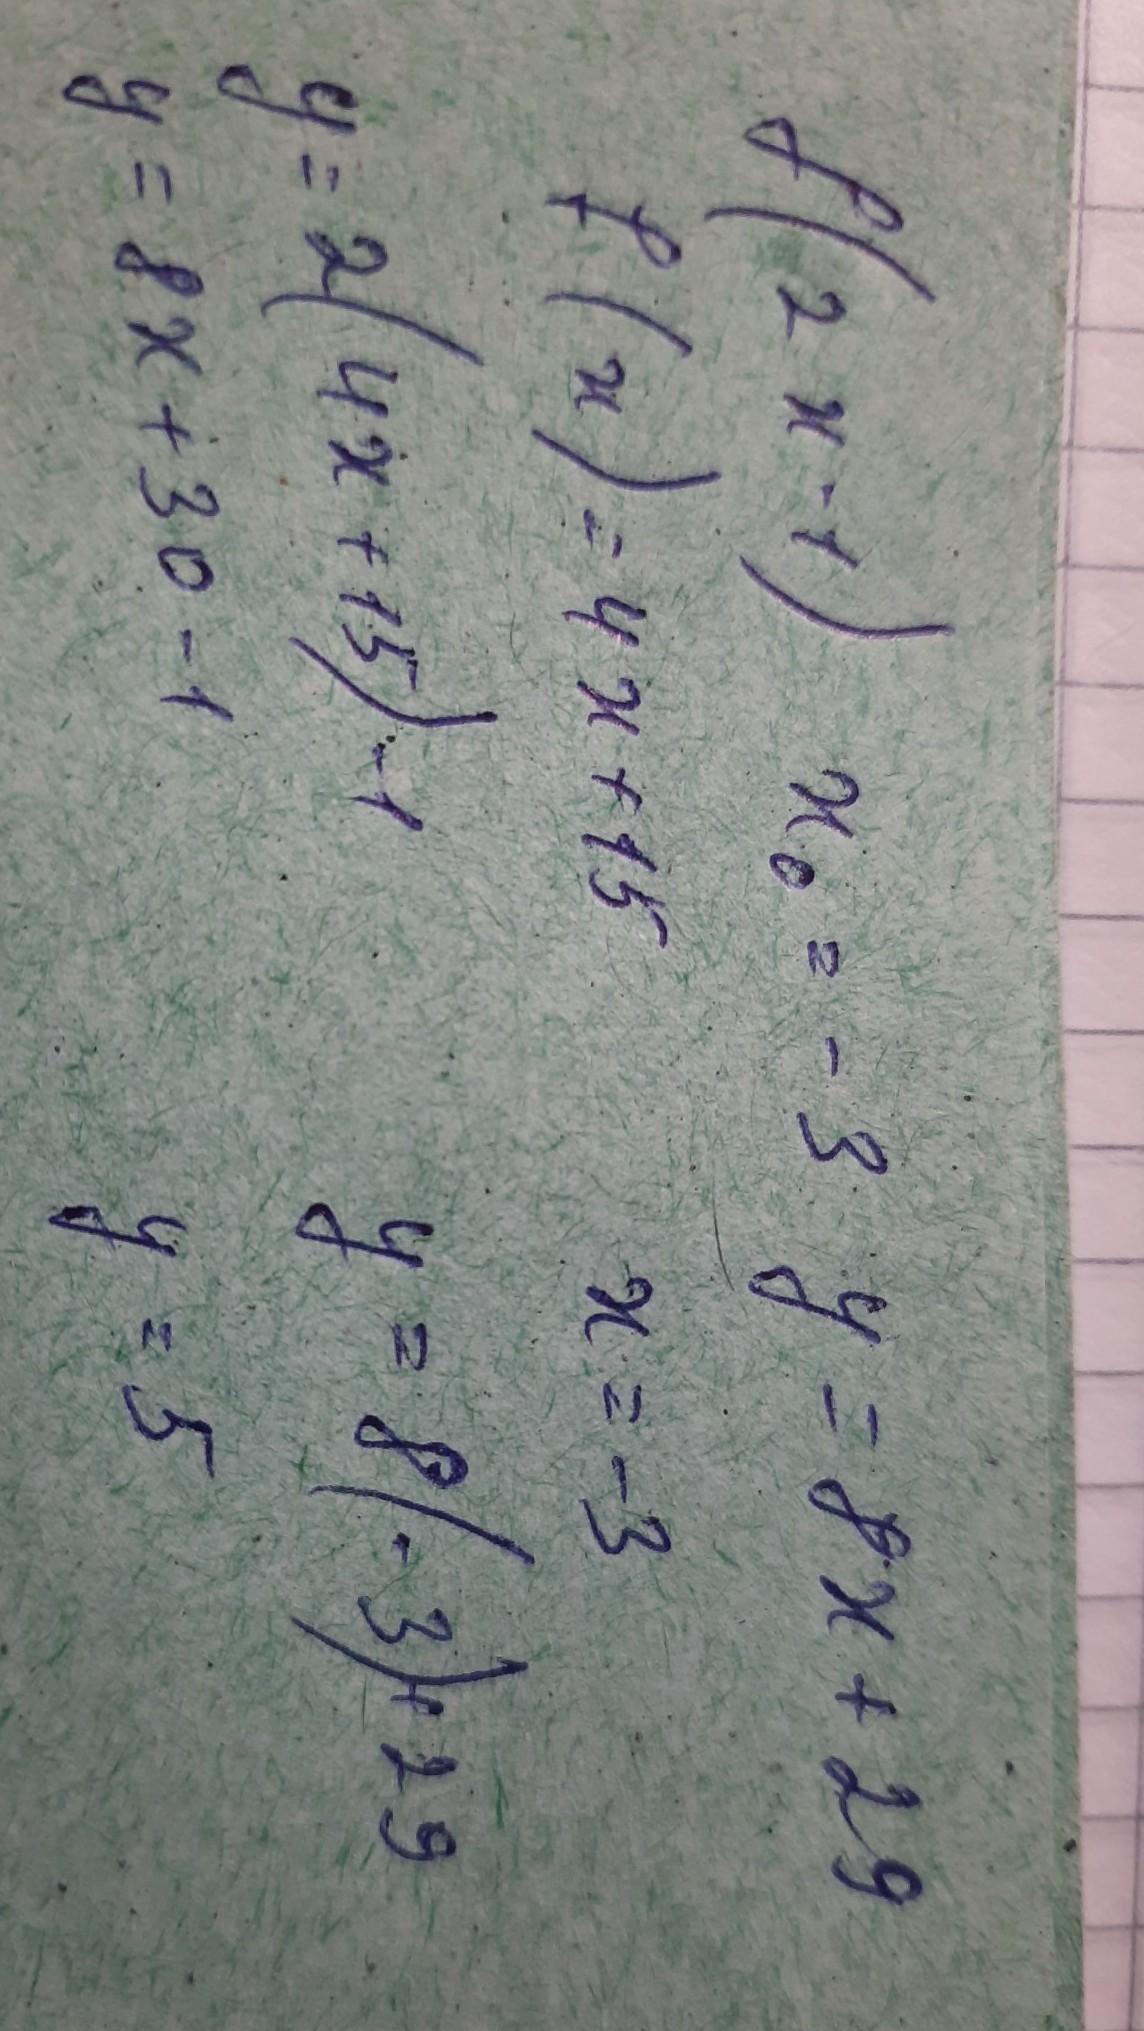 f(2x-1) x₀ = -3 y = 8x + 29
f(x) = 4x + 15 x = -3
y = 2(4x + 15) - 1 y = 8(-3) + 29
y = 8x + 30 - 1 y = 5